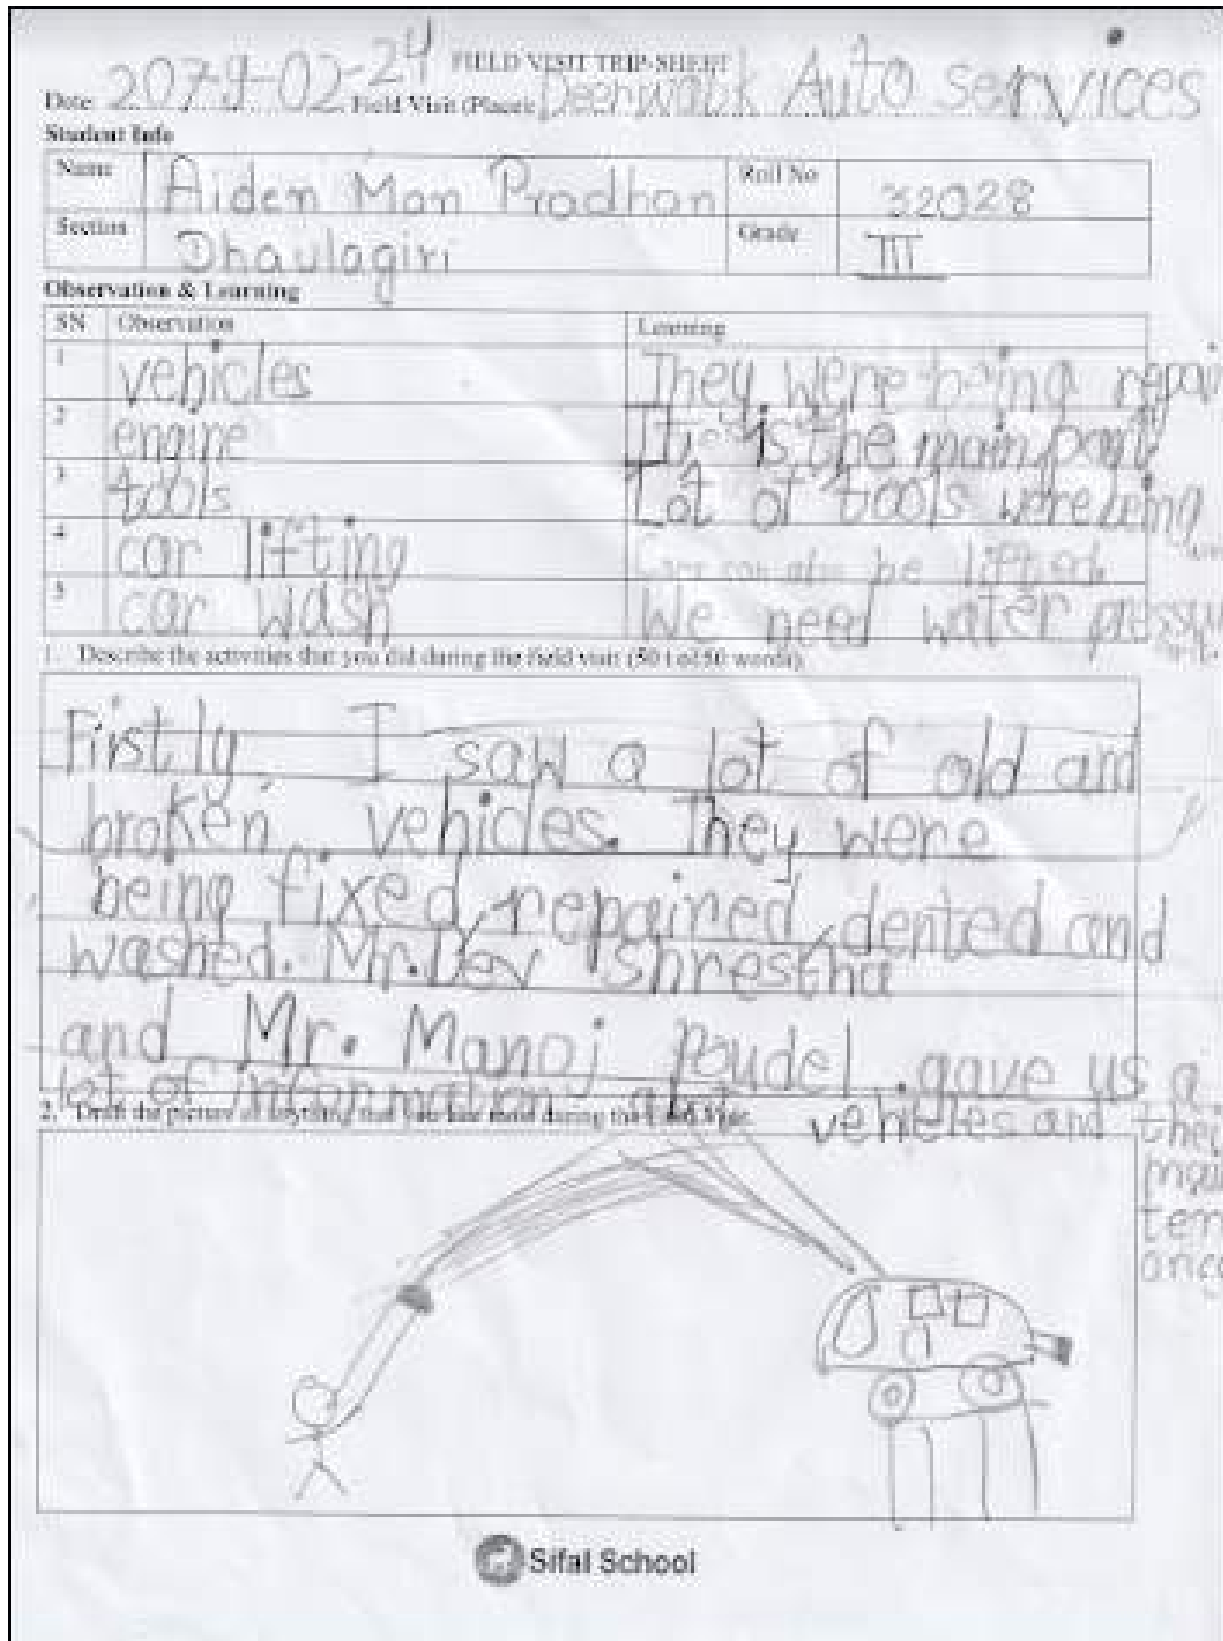 FIELD VISIT TRIP-SHEET
Date: 2079-02-24 Field Visit (Place): Deerwalk Auto services
Student Info
Name Aiden Man Pradhan Roll No 32028
Section Dhaulagiri Grade III
Observation & Learning
SN Observation Learning
1 vehicles They were being repair
2 engine It is the main part
3 tools Lot of tools were being
4 car lifting Cars can also be lifted
5 car wash We need water pressu
1. Describe the activities that you did during the field visit (50 words)
Firstly, I saw a lot of old and
broken vehicles. They were
being fixed, repaired, dented and
washed. Mr. Dev Shrestha
and Mr. Manoj Poudel gave us a
lot of information about vehicles and their
main
ten
ance
2. Draft the picture of anything that you like most during the field visit.
Sifal School